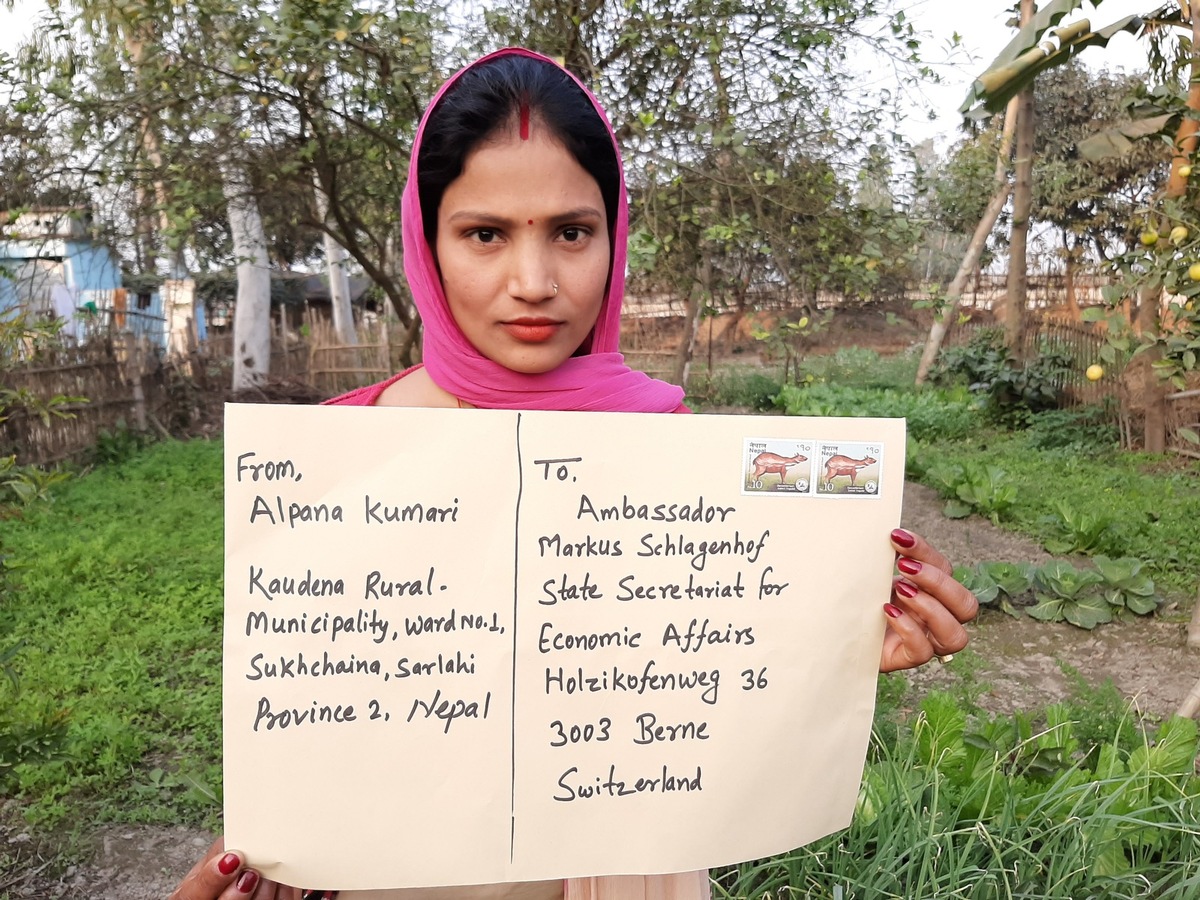 From,
Alpana Kumari
Kaudena Rural-
Municipality, ward No.1,
Sukhchaina, sarlahi
Province 2, Nepal
To,
Ambassador
Markus Schlagenhof
State Secretariat for
Economic Affairs
Holzikofenweg 36
3003 Berne
Switzerland
नेपाल
Nepal
१०
10
नेपाल
Nepal
१०
10